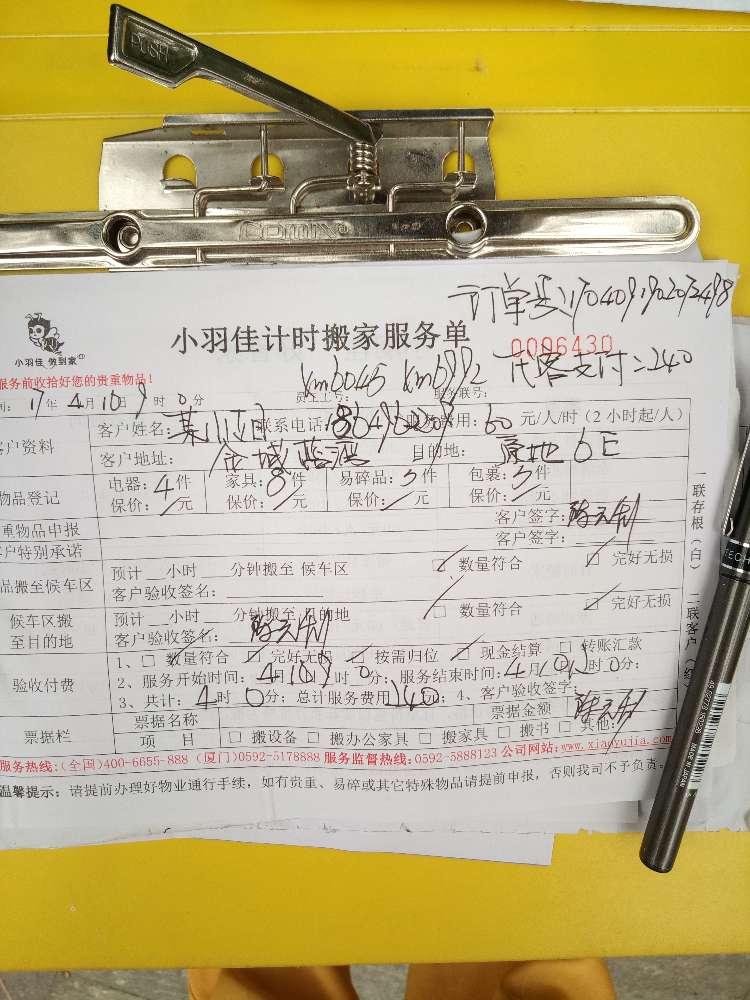 PUSH
Comix
订单号:1704091902072498
小羽佳 做到家
小羽佳计时搬家服务单
0006430
服务前收拾好您的贵重物品!
Km6045 Km6772 代客支付:240
间: 17年4月10日9时0分 员工工号: 服务联号:
客户资料
客户姓名: 联系电话: 服务费用: 60 元/人/时(2小时起/人)
客户地址: 金域蓝湾 目的地: 6E
物品登记
电器: 4件 家具: 8件 易碎品: 3件 包裹: 3件
保价: 元 保价: 元 保价: 元 保价: 元
重物品申报 客户签字:
户特别承诺 客户签字:
品搬至候车区
预计__小时__分钟搬至 候车区 □ 数量符合 □ 完好无损
客户验收签名:
候车区搬至目的地
预计__小时__分钟搬至 目的地 □ 数量符合 □ 完好无损
客户验收签名:
验收付费
1、□ 数量符合 □ 完好无损 □ 按需归位 □ 现金结算 □ 转账汇款
2、服务开始时间: 4月10日9时0分; 服务结束时间: 4月10日 时0分;
3、共计: 4时0分; 总计服务费用 240元; 4、客户验收签字:
票据栏
票据名称 票据金额
项 目 □ 搬设备 □ 搬办公家具 □ 搬家具 □ 搬书 □ 其他:
一联存根(白) 二联客户(红)
服务热线:(全国)400-6655-888 (厦门)0592-5178888 服务监督热线:0592-5888123 公司网站:www.xiaoyujia.com
温馨提示: 请提前办理好物业通行手续,如有贵重、易碎或其它特殊物品请提前申报,否则我司不予负责。
TECH
MADE IN JAPAN